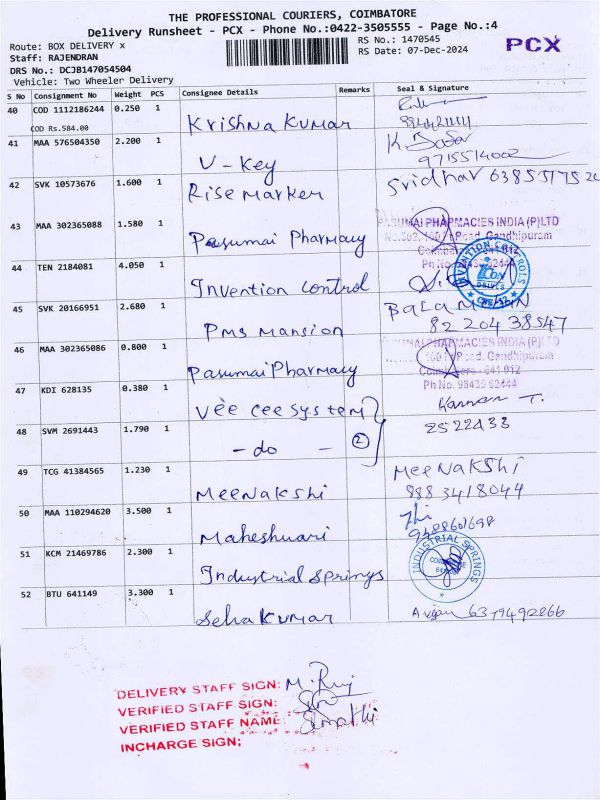 THE PROFESSIONAL COURIERS, COIMBATORE
Delivery Runsheet - PCX - Phone No.:0422-3505555 - Page No.:4
Route: BOX DELIVERY x
RS No.: 1470545
PCX
Staff: RAJENDRAN
RS Date: 07-Dec-2024
DRS No.: DCJB147054504
Vehicle: Two Wheeler Delivery
S No Consignment No Weight PCS Consignee Details Remarks Seal & Signature
40 COD 1112186244 0.250 1
COD Rs.584.00
Krishna Kumar
41 MAA 576504350 2.200 1
V-Key
9715514002
42 SVK 10573676 1.600 1
Rise Marker
Sridhar
43 MAA 302365088 1.580 1
Pasumai Pharmacy
PASUMAI PHARMACIES INDIA (P)LTD
Road, Gandhipuram
44 TEN 2184081 4.050 1
Invention Control
INVENTION CONTROLS
iCon
DRIVES
45 SVK 20166951 2.680 1
PMS Mansion
82204 38547
46 MAA 302365086 0.800 1
Pasumai Pharmacy
PHARMACIES INDIA (P)LTD
Road, Gandhipuram
641 012
Ph No. 98439 62444
47 KDI 628135 0.380 1
Vee Cee System
Kannan T.
48 SVM 2691443 1.790 1
- do -
2
2522433
49 TCG 41384565 1.230 1
Meenakshi
Meenakshi
98834 18044
50 MAA 110294620 3.500 1
Maheshwari
51 KCM 21469786 2.300 1
Industrial Springs
INDUSTRIAL SPRINGS
52 BTU 641149 3.300 1
Selva Kumar
6379492866
DELIVERY STAFF SIGN:
VERIFIED STAFF SIGN:
VERIFIED STAFF NAME:
INCHARGE SIGN;